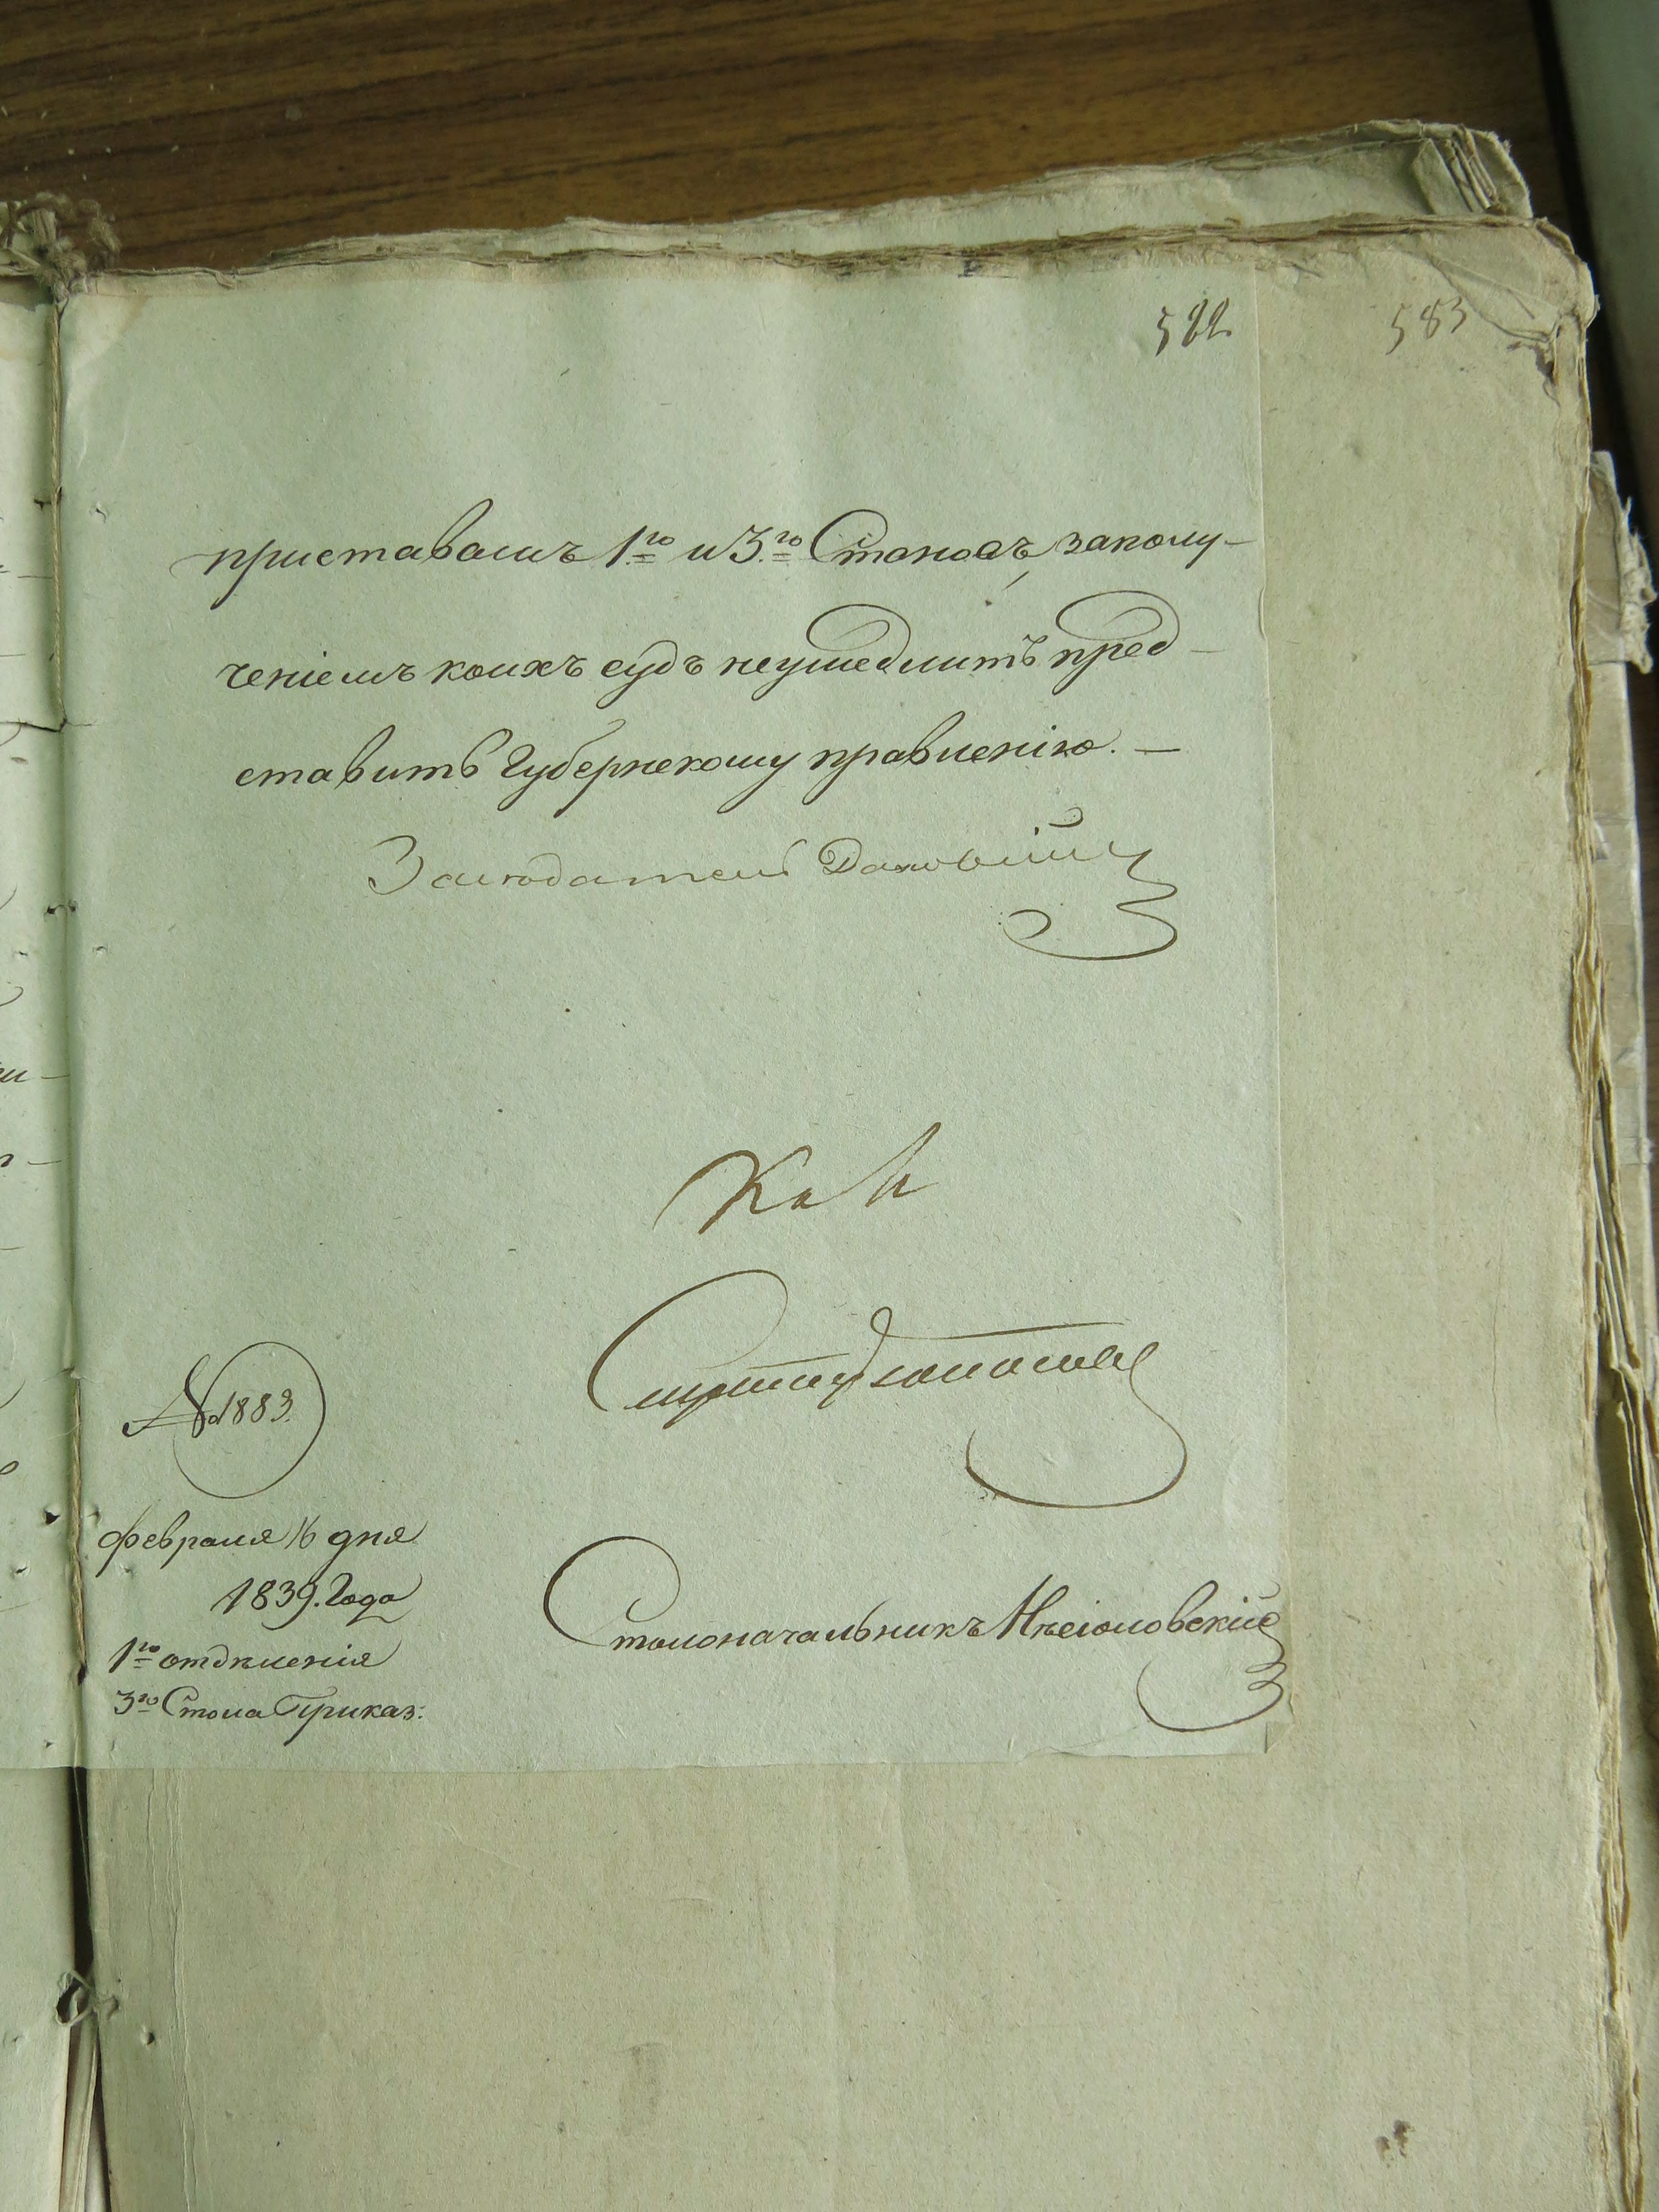 582
583
приставамъ 1го и 3го Становъ, заполу-
ченіемъ коихъ судъ неумедлитъ пред-
ставить Губернскому правленію. —
Заседатель
№ 1883.
Февраля 16 дня
1839. Года
1го отдѣленія
3го Стола Приказ:
Столоначальникъ